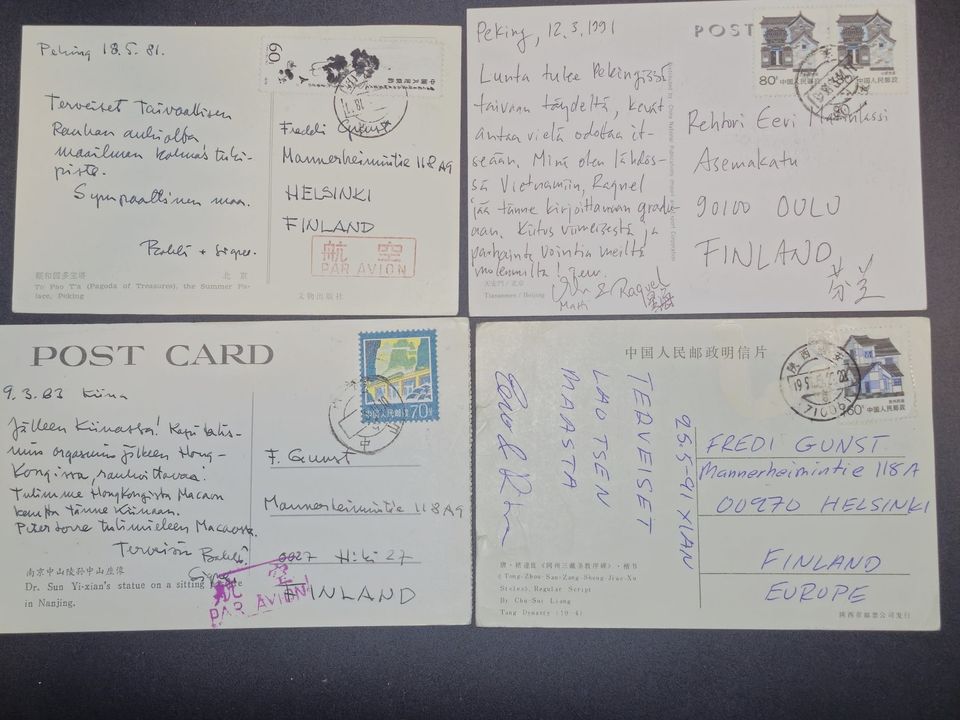 Peking 18.5.81.
Terveiset Taivaallisen
Rauhan aukiolta
maailman kolmas tuki-
piste.
Sympaattinen maa.
60分
中国人民邮政
Freddi Gunst
Mannerheimintie 118 A9
HELSINKI
FINLAND
航 空
PAR AVION
颐和园多宝塔 北京
To Pao T'a (Pagoda of Treasures), the Summer Pa-
lace, Peking
文物出版社
Peking, 12.3.1991
Lunta tulee Pekingissä
taivaan täydeltä, kevät
antaa vielä odottaa it-
seään. Minä olen lähdös-
sä Vietnamiin, Raquel
jää tänne kirjoittamaan gradu-
aan. Kiitos viimeisestä ja
parhainta vointia meiltä
molemmilta!
& Raquel
Matti
天安门/北京
Tiananmen/Beijing
POST
80分 中国人民邮政
中国人民邮政
Rehtori Eevi
Asemakatu
90100 OULU
FINLAND
芬兰
POST CARD
9.3.83 Kiina
Jälleen Kiinassa! Kapitalis-
min orgasmin jälkeen Hong-
Kongissa, rauhoittavaa!
Tulimme Hongkongista Macaon
kautta tänne Kiinaan.
Peter Lorre tuli mieleen Macaossa.
Terveisin
南京中山陵孙中山座像
Dr. Sun Yi-xian's statue on a sitting
in Nanjing.
中国人民邮政 70分
F. Gunst
Mannerheimintie 118 A9
0027 H:ki 27
FINLAND
航 空
PAR AVION
中国人民邮政明信片
60分 中国人民邮政
710061
25.5-91 XIAN
TERVEISET
LAO TSEN
MAASTA
FREDI GUNST
Mannerheimintie 118A
00270 HELSINKI
FINLAND
EUROPE
唐·褚遂良《同州三藏圣教序碑》·楷书
(Tong-Zhou-San-Zang-Sheng-Jiao-Xu
Steles), Regular Script
By Chu-Sui Liang
Tang Dynasty (10-4)
陕西省邮票公司发行